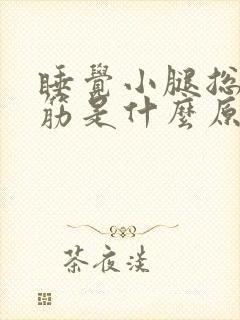 睡覺小腿抽
筋是什麼原
茶夜淡